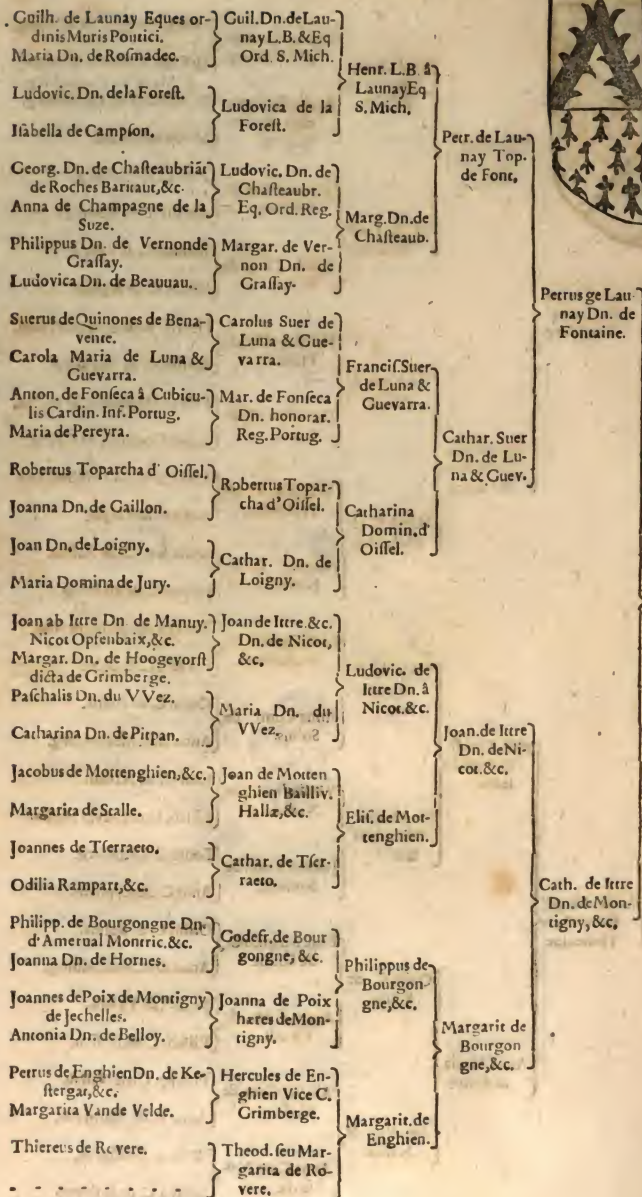 Guilh. de Launay Eques or-
dinis Muris Pontici.
Maria Dn. de Rosmadec.
Ludovic. Dn. dela Forest.
Isabella de Campson.
Georg. Dn. de Chasteaubriāt
de Roches Baritaut, &c.
Anna de Champagne de la
Suze.
Philippus Dn. de Vernonde
Grassay.
Ludovica Dn. de Beauuau.
Suerus de Quinones de Bena-
vente.
Carola Maria de Luna &
Guevarra.
Anton. de Fonseca â Cubicu-
lis Cardin. Inf. Portug.
Maria de Pereyra.
Robertus Toparcha d' Oissel.
Joanna Dn. de Gaillon.
Joan Dn. de Loigny.
Maria Domina de Jury.
Joan ab Ittre Dn. de Manuy.
Nicot Opfenbaix, &c.
Margar. Dn. de Hoogevorst
dicta de Grimberge.
Paschalis Dn. du VVez.
Catharina Dn. de Pitpan.
Jacobus de Mottenghien, &c.
Margarita de Stalle.
Joannes de Tserraeto.
Odilia Rampart, &c.
Philipp. de Bourgongne Dn.
d' Amerual Montric. &c.
Joanna Dn. de Hornes.
Joannes de Poix de Montigny
de Jechelles.
Antonia Dn. de Belloy.
Petrus de Enghien Dn. de Ke-
stergat, &c.
Margarita Vande Velde.
Thiereus de Rovere.
- - - - - - - -
Guil. Dn. de Lau-
nay L. B. & Eq
Ord. S. Mich.
Ludovica de la
Forest.
Ludovic. Dn. de
Chasteaubr.
Eq. Ord. Reg.
Margar. de Ver-
non Dn. de
Grassay.
Carolus Suer de
Luna & Gue-
varra.
Mar. de Fonseca
Dn. honorar.
Reg. Portug.
Robertus Topar-
cha d'Oissel.
Cathar. Dn. de
Loigny.
Joan de Ittre. &c.
Dn. de Nicot,
&c,
Maria Dn. du
VVez.
Joan de Motten
ghien Bailliv.
Hallæ, &c.
Cathar. de Tser-
raeto.
Godefr. de Bour
gongne, &c.
Joanna de Poix
hæres de Mon-
tigny.
Hercules de En-
ghien Vice C.
Grimberge.
Theod. seu Mar-
garita de Ro-
vere.
Henr. L. B. â
Launay Eq
S. Mich,
Marg. Dn. de
Chasteaub.
Francis. Suer
de Luna &
Guevarra.
Catharina
Domin. d'
Oissel.
Ludovic. de
Ittre Dn. â
Nicot. &c.
Elis. de Mot-
tenghien.
Philippus de
Bourgon-
gne, &c.
Margarit. de
Enghien.
Petr. de Lau-
nay Top.
de Font,
Cathar. Suer
Dn. de Lu-
na & Guev.
Joan. de Ittre
Dn. de Ni-
cot. &c.
Margarit de
Bourgon
gne, &c.
Petrus ge Lau-
nay Dn. de
Fontaine.
Cath. de Ittre
Dn. de Mon-
tigny, &c,